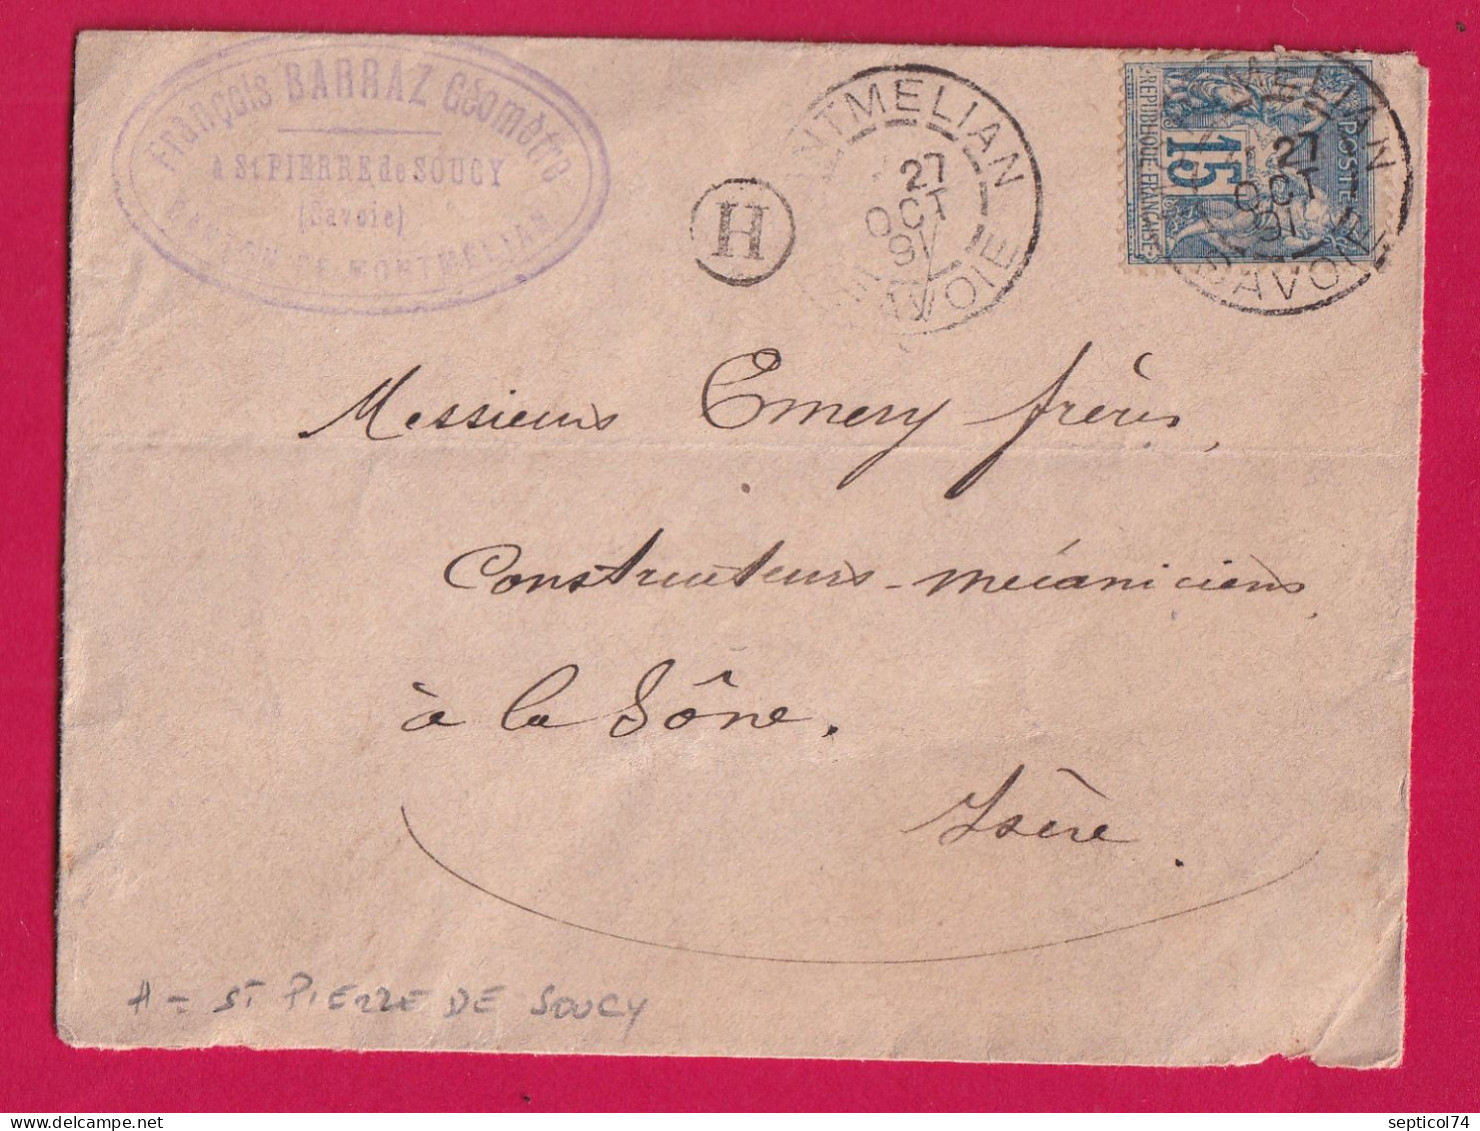 François BARRAZ Géomètre
à St PIERRE de SOUCY
(Savoie)
CANTON DE MONTMÉLIAN
H
MONTMELIAN
27
OCT
91
SAVOIE
REPUBLIQUE FRANÇAISE
15
POSTES
MONTMELIAN
27
OCT
91
SAVOIE
Messieurs Emery frères,
Constructeurs-mécaniciens,
à la Sône.
Isère.
H = ST PIERRE DE SOUCY
septicol74